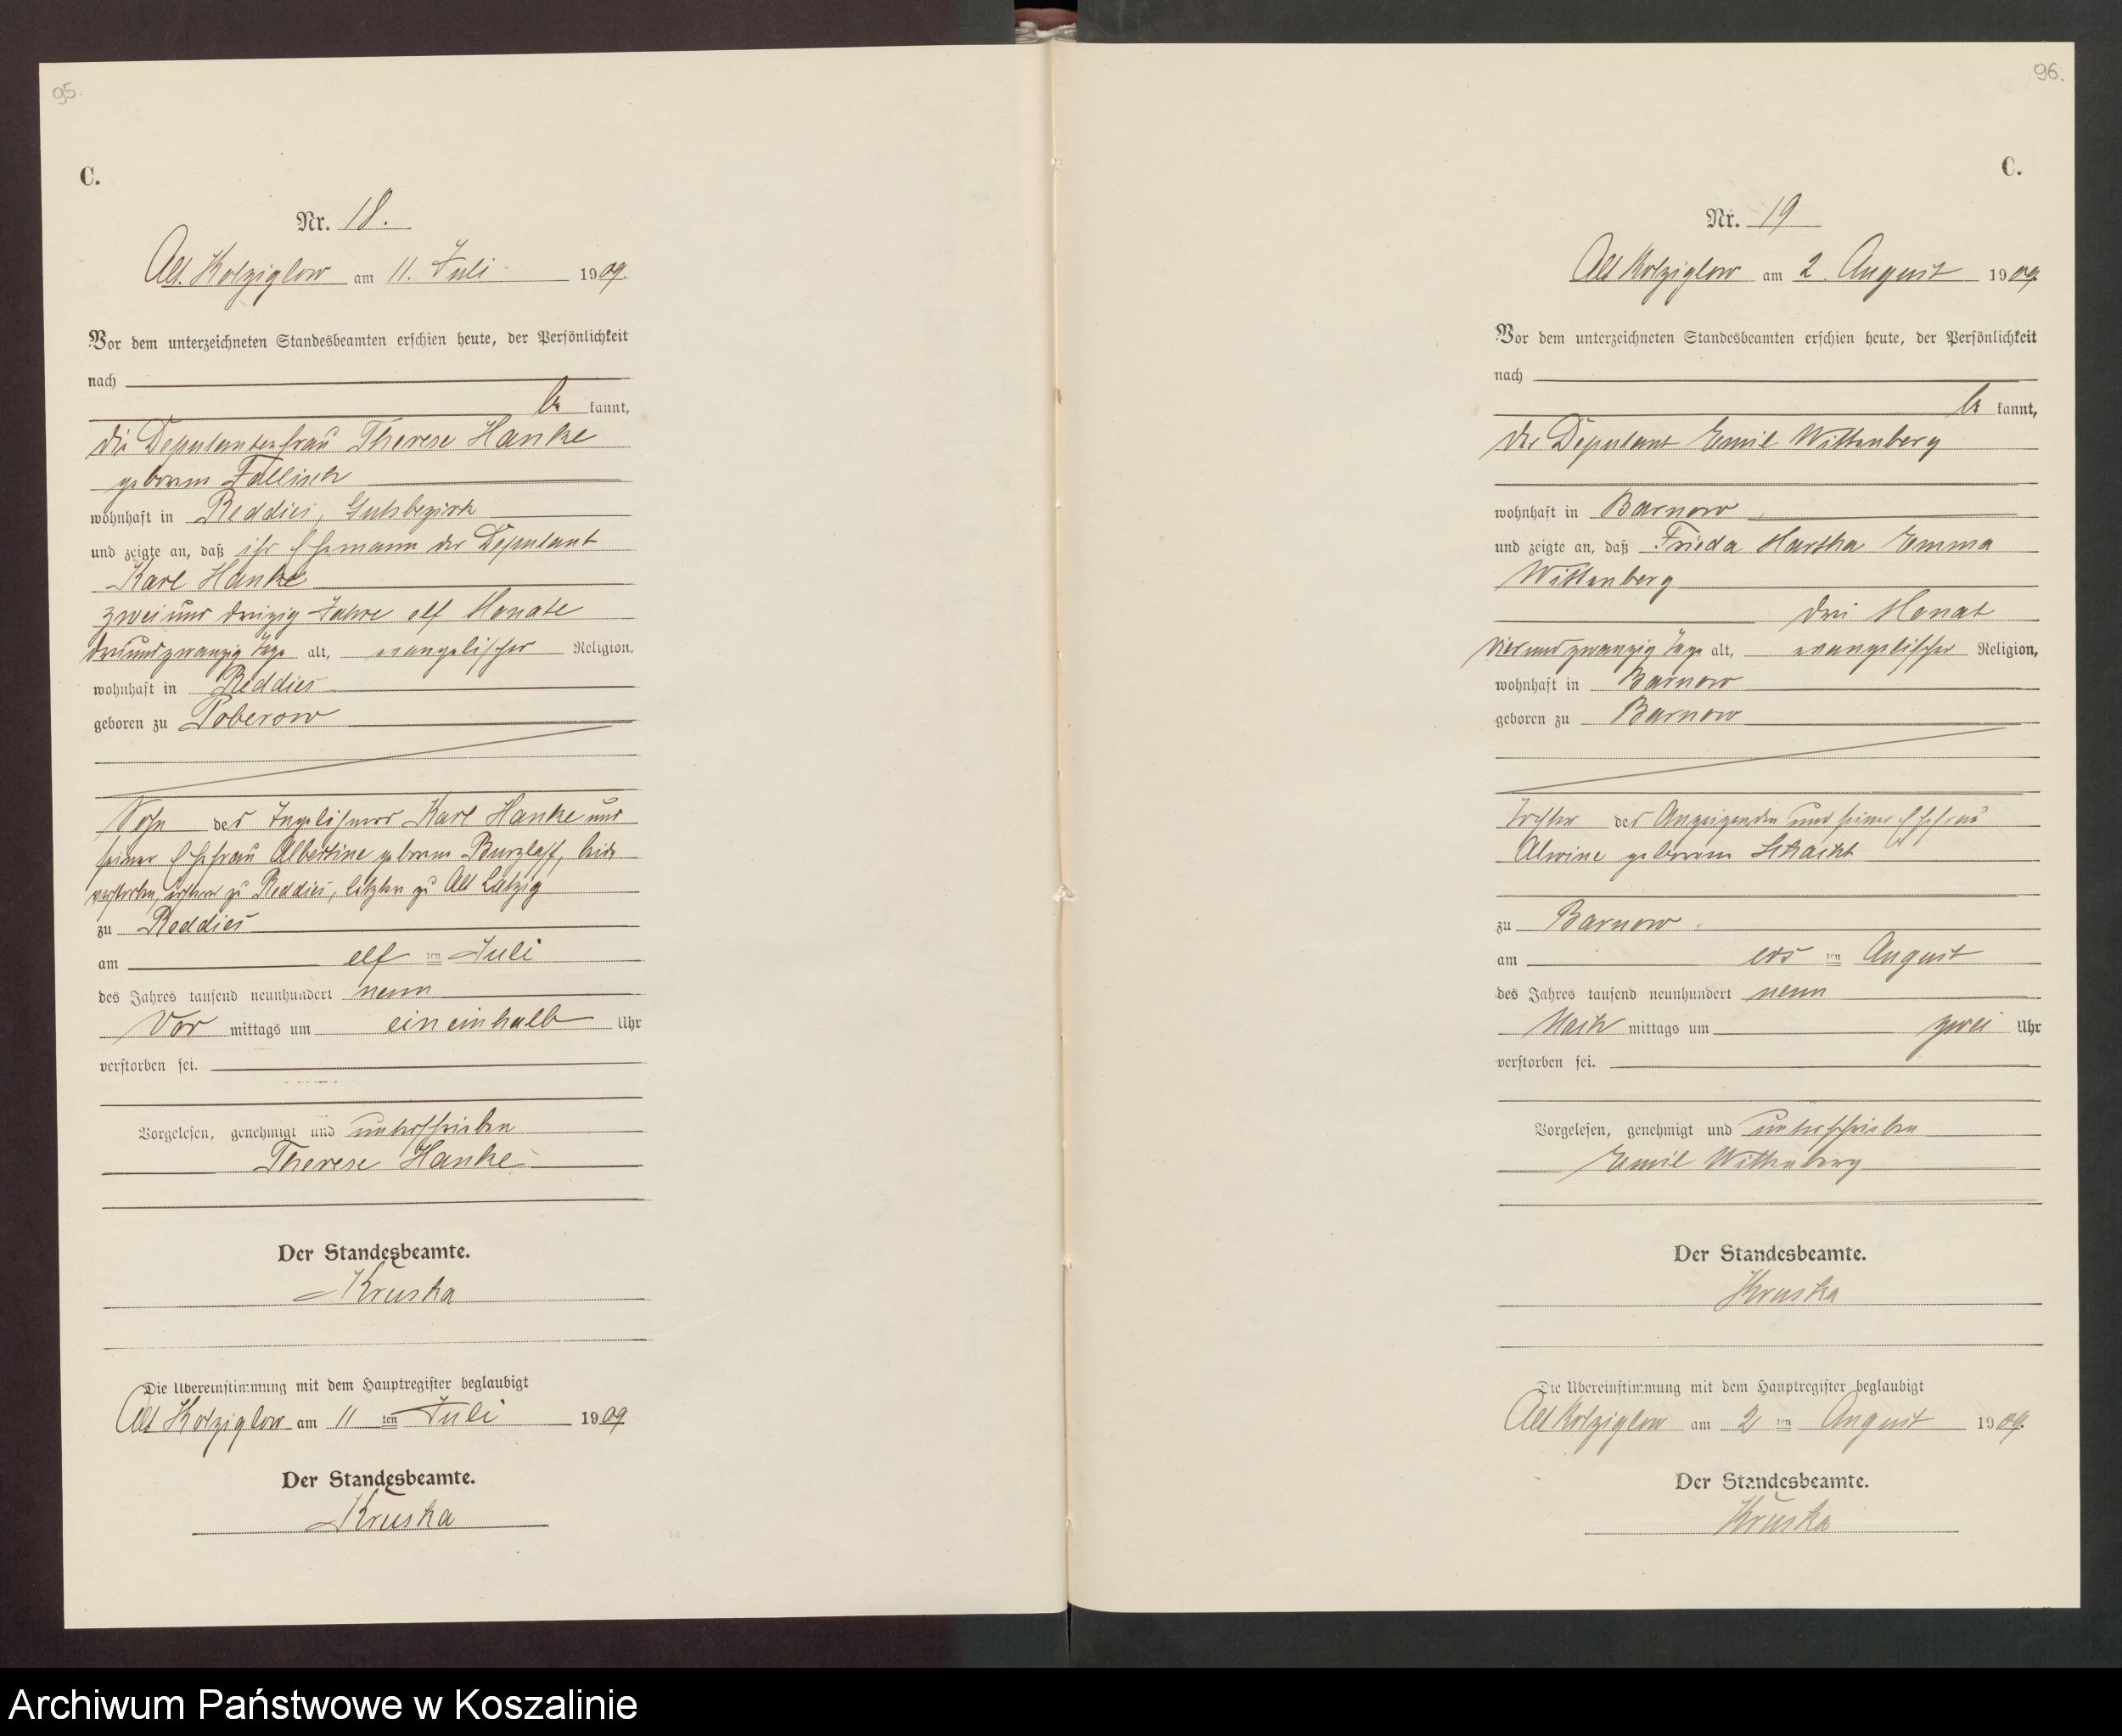 95.
C.
Nr. 18.
Alt. Kolziglow am 11. Juli 1909.
Vor dem unterzeichneten Standesbeamten erschien heute, der Persönlichkeit
nach
be kannt,
die Deputantenfrau Therese Hanke
geborene Fallisch
wohnhaft in Reddies, Gutsbezirk
und zeigte an, daß ihr Ehemann der Deputant
Karl Hanke
zweiund dreizig Jahre elf Monate
dreiundzwanzig Tage alt, evangelischer Religion,
wohnhaft in Reddies
geboren zu Poberow
Sohn des Karl Hanke und
seiner Ehefrau Albertine geborene Burzlaff, beide
verstorben, ersterer zu Reddies, letztere zu Alt Latzig
zu Reddies
am elf ten Juli
des Jahres tausend neunhundert neun
Vor mittags um eineinhalb Uhr
verstorben sei.
Vorgelesen, genehmigt und unterschrieben
Therese Hanke
Der Standesbeamte.
Kruska
Die Übereinstimmung mit dem Hauptregister beglaubigt
Alt Kolziglow am 11 ten Juli 1909
Der Standesbeamte.
Kruska
96.
C.
Nr. 19
Alt Kolziglow am 2. August 1909.
Vor dem unterzeichneten Standesbeamten erschien heute, der Persönlichkeit
nach
be kannt,
der Deputant Emil Wittenberg
wohnhaft in Barnow
und zeigte an, daß Frieda Martha Emma
Wittenberg
drei Monat
vierundzwanzig Tage alt, evangelischer Religion,
wohnhaft in Barnow
geboren zu Barnow
Tochter des Anzeigenden und seiner Ehefrau
Alwine geborene Schacht
zu Barnow
am ers ten August
des Jahres tausend neunhundert neun
Nach mittags um zwei Uhr
verstorben sei.
Vorgelesen, genehmigt und unterschrieben
Emil Wittenberg
Der Standesbeamte.
Kruska
Die Übereinstimmung mit dem Hauptregister beglaubigt
Alt Kolziglow am 2 ten August 1909.
Der Standesbeamte.
Kruska
Archiwum Państwowe w Koszalinie